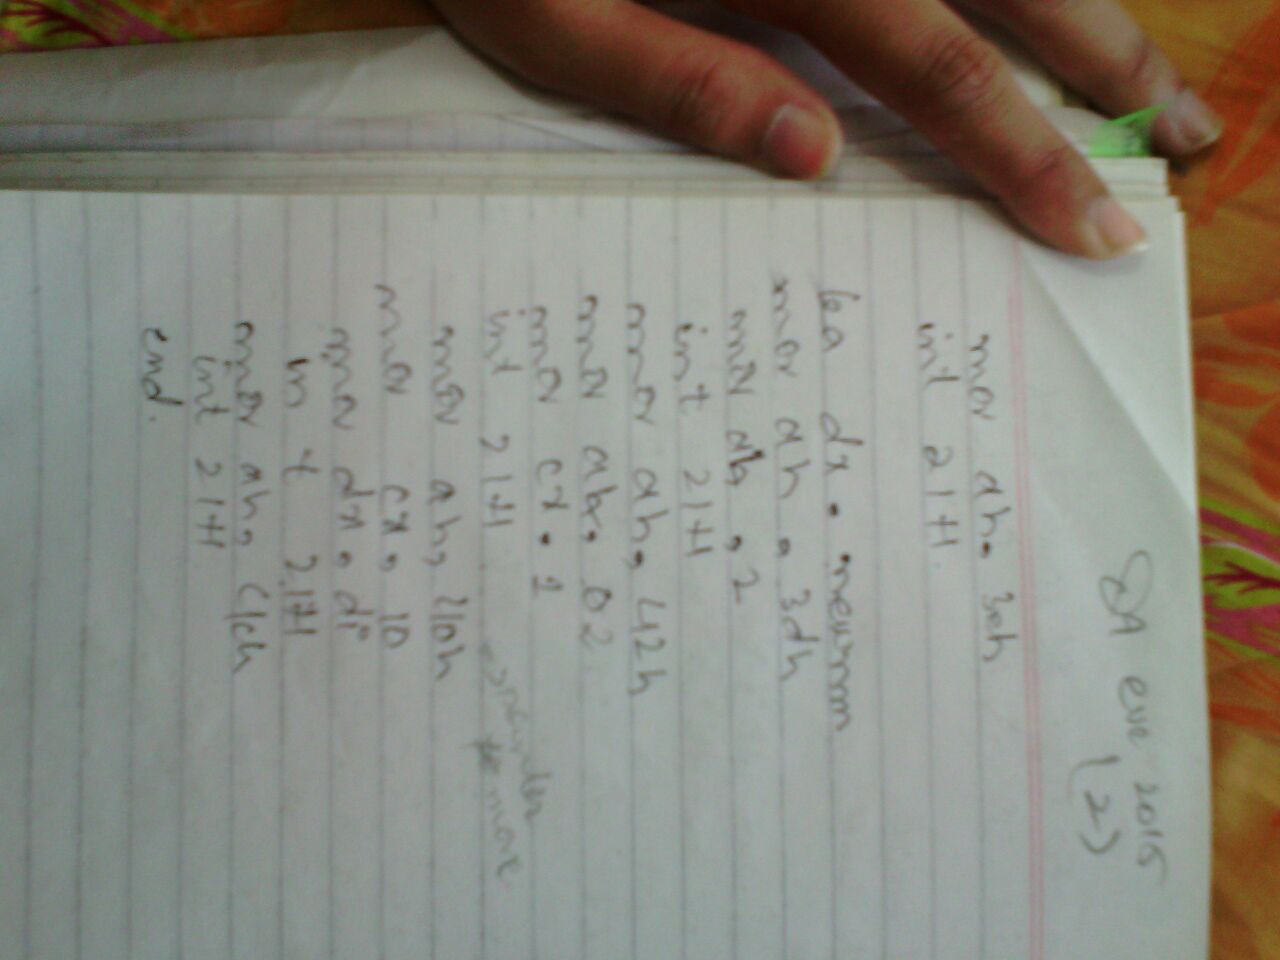 eve 2015
(2)
mov ah, 3eh
int 21H.
lea dx, neunm
mov ah, 3dh
mov ah, 2
int 21H
mov ah, 42h
mov ah, 02
mov cx, 1
int 21H
mov ah, 40h
mov cx, 10
mov dx, di
int 21H
mov ah, 4ch
int 21H
end.